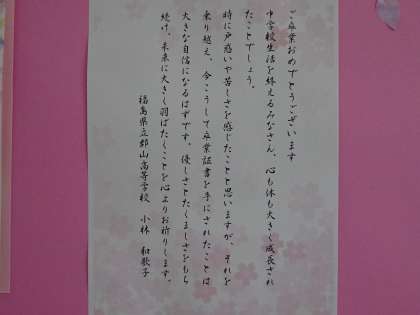 ご卒業おめでとうございます
中学校生活を終えるみなさん、心も体も大きく成長され
たことでしょう。
時に戸惑いや苦しさを感じたことと思いますが、それを
乗り越え、今こうして卒業証書を手にされたことは
大きな自信になるはずです。優しさとたくましさをもち
続け、未来に大きく羽ばたくことを心よりお祈りします。
福島県立郡山高等学校 小林 和歌子